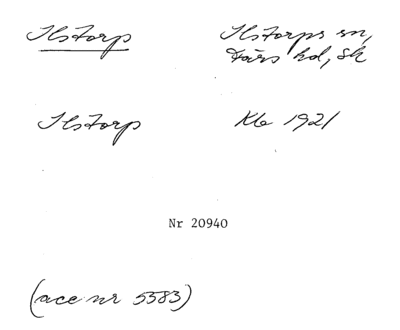 Ilstorp Ilstorps sn,
Färs hd, Sk
Ilstorp Klb 1921
Nr 20940
(acc nr 5583)